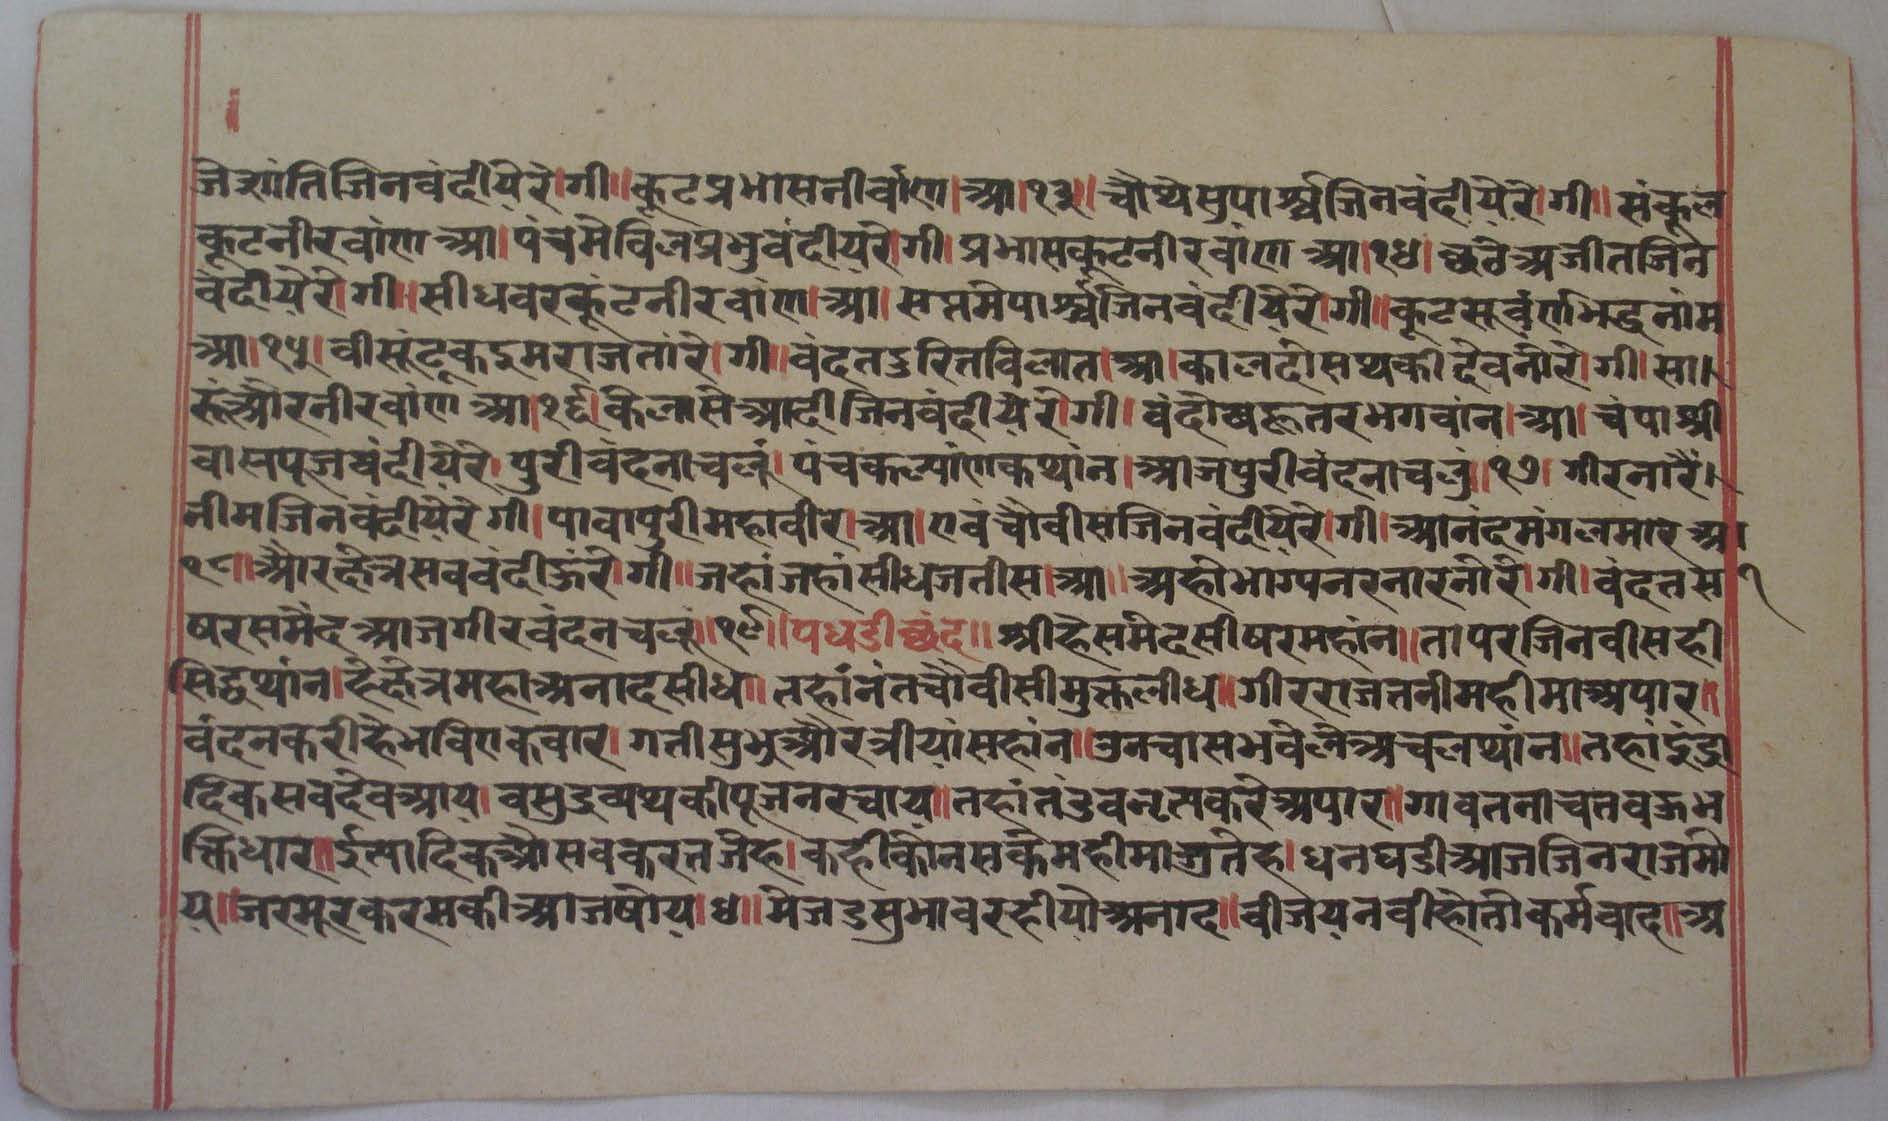 जेशांतिजिनवंदीयेरे।गी॥कूटप्रभासनीर्वाण।आ।१३॥चौथेसुपार्श्वजिनवंदीयेरे।गी॥संकूल
कूटनीरवांण आ।पंचमेविलप्रभुवंदीयेरे।गी।प्रभासकूटनीरवांण आ।१४।छठेअजीतजिन
वंदीयेरे।गी॥सीधवरकूंटनीरवांण।आ।सप्तमेपार्श्वजिनवंदीयेरे।गी॥कूटसर्वणभद्रनांम
आ।१५।वीसूंटकद्रुमराजतांरे।गी॥वंदतडरितविलात।आ।कालदोसथकीदेवनीरे।गी।सा।
रूंऔरनीरवांण आ।१६।कैलासेआदीजिनवंदीयेरे।गी।वंदौ भगवांन।आ।चंपाश्री
वासपूजवंदीयेरे।पुरीवंदनाचलूं।पंचकल्यांणकथांन।आजपुरीवंदनाचलूं॥१७।गीरनारैं।
नीमजिनवंदीयेरेगी।पावापुरीमहावीर।आ।एवंचौवीसजिनवंदीयेरे।गी।आनंदमंगलमार आ।
१८॥औरक्षेत्रसबवंदीऊंरे।गी॥जहांजहांसीधजतीस।आ॥अहोभाग्यनरनारनीरे।गी।वंदतस१
षरसमेंदआजगीरवंदनचलूं॥१९॥पधडीछंद॥श्रीहैसमेदसीषरमहांन॥तापरजिनवीसही
सिद्धथांन।हैक्षेत्रमहाअनादसीध॥तहांनंतचौवीसीमुक्तलीध॥गीरराजतनीमहीमाअपार॥
वंदनकरीहैभविएकवार।गतीसुभुऔरत्रीयांसहांन॥उनचासभवैलैअचलथांन॥तहांइंद्रा
दिकसबदेवआय।वसुद्रव्यथकीपूजनरचाय॥तहांतंडवनृतकरैअपार॥गावतनाचतवऊभ
क्तिधार॥ईत्यादिकऔसबकरतजेह।कहीकौनसकैमहीमाजुतेह।धनघडीआजजिनराजमो
य॥जरमूरकरमकीआजषोय।४॥मेजडसुभावरहीयौअनाद॥वीजेयनवीहोतोकर्मवाद॥अ